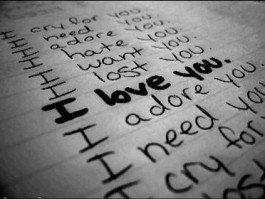 I cry for you.
I need you.
I adore you.
I hate you.
I want you.
I lost you.
I love you.
I adore you.
I need you.
I cry for
lost